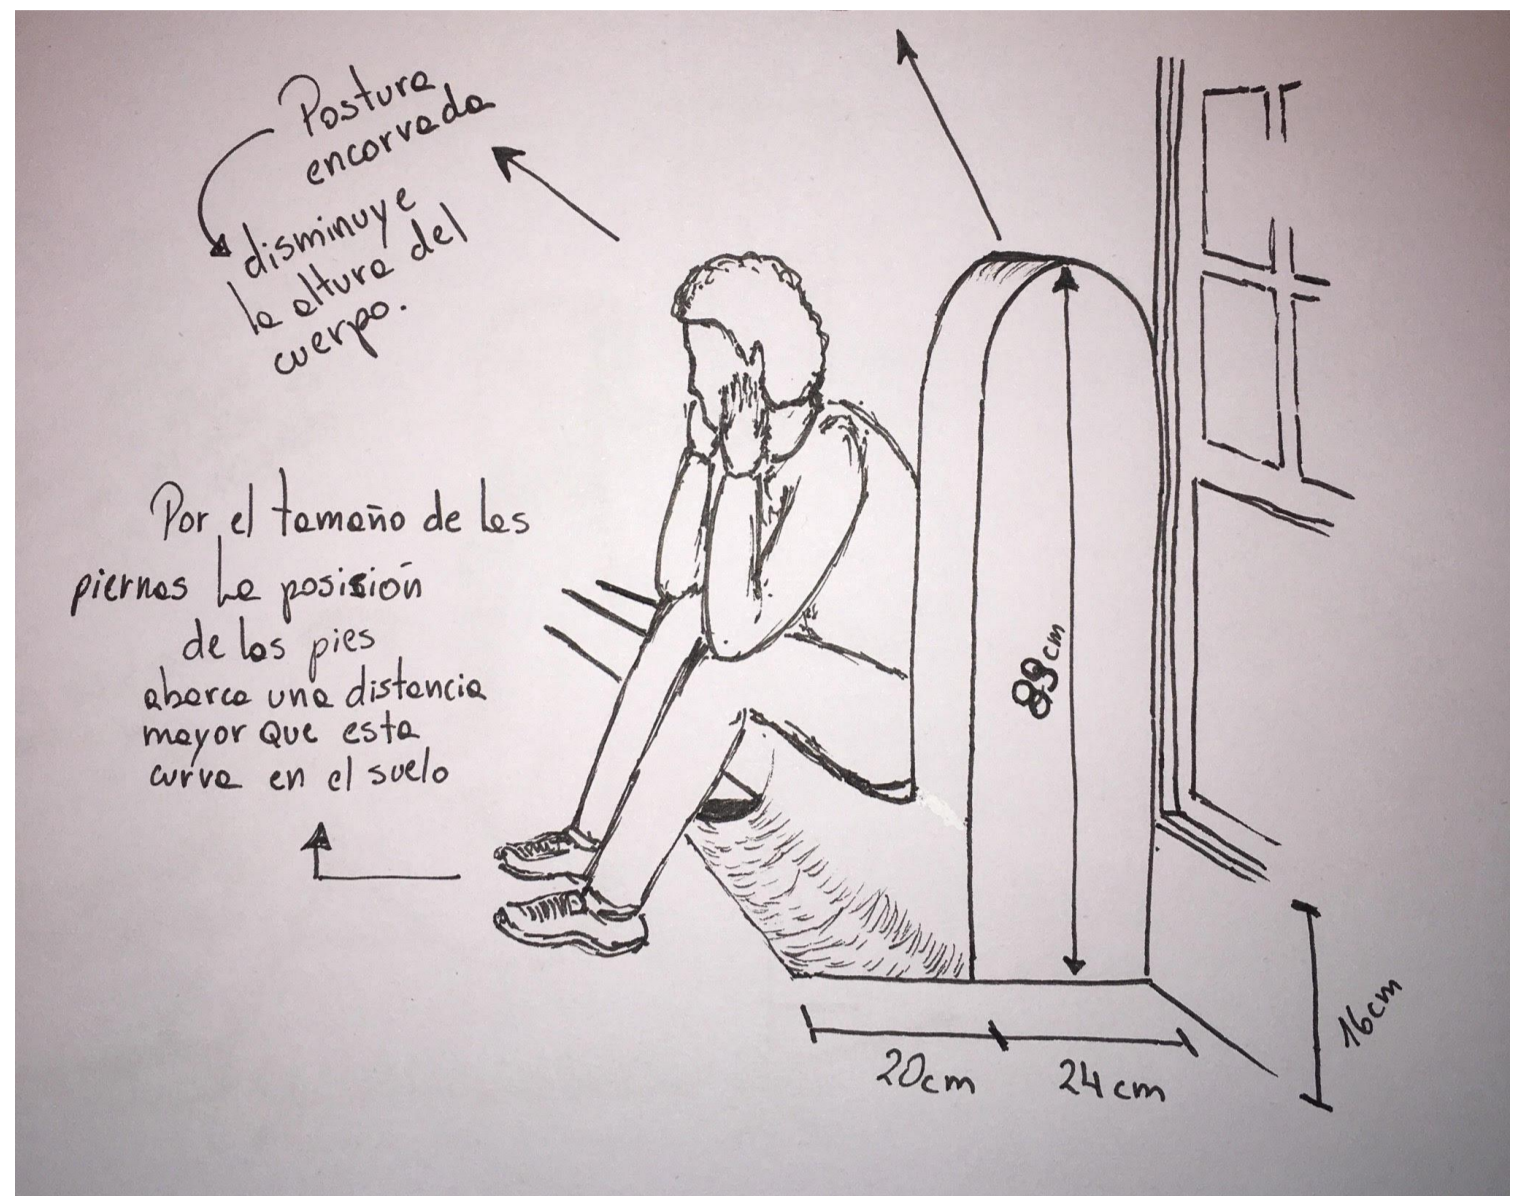 Postura
encorvada
disminuye
la altura del
cuerpo.
Por el tamaño de las
piernas la posisión
de los pies
abarca una distancia
mayor que esta
curva en el suelo
89cm
20cm
24cm
16cm